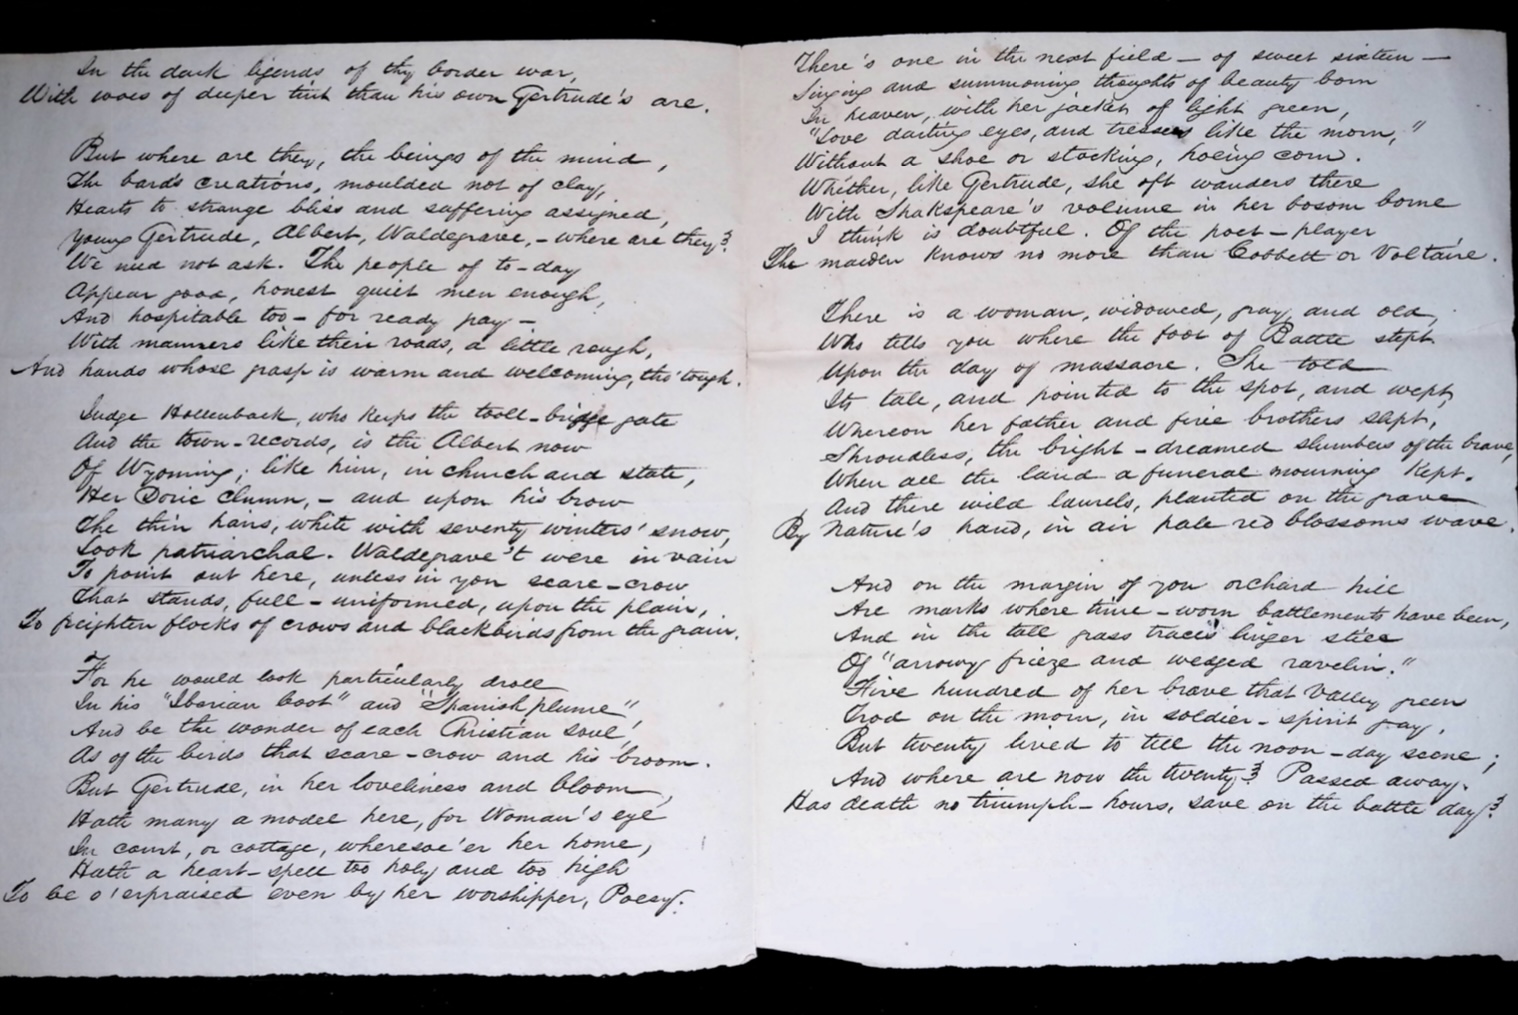 In the dark legends of thy border war,
With woes of deeper tint than his own Gertrude's are.
But where are they, the beings of the mind,
The bard's creations, moulded not of clay,
Hearts to strange bliss and suffering assigned,
Young Gertrude, Albert, Waldegrave, - where are they?
We need not ask. The people of to-day
Appear good, honest quiet men enough,
And hospitable too - for ready pay -
With manners like their roads, a little rough,
And hands whose grasp is warm and welcoming, tho' tough.
Judge Hallenback, who keeps the toll-bridge gate
And the town-records, is the Albert now
Of Wyoming; like him, in church and state,
Her Doric clumn, - and upon his brow
The thin hairs, white with seventy winters' snow,
Look patriarchal. Waldegrave 't were in vain
To point out here, unless in yon scare-crow
That stands, full-uniformed, upon the plain,
To frighten flocks of crows and blackbirds from the grain.
For he would look particularly droll
In his "Iberian boot" and "Spanish plume",
And be the wonder of each Christian soul,
As of the birds that scare-crow and his broom.
But Gertrude, in her loveliness and bloom,
Hath many a model here, for Woman's eye
In court, or cottage, wheresoe'er her home,
Hath a heart-spell too holy and too high
To be o'erpraised even by her worshipper, Poesy.
There's one in the next field - of sweet sixteen -
Singing and summoning thoughts of beauty born
In heaven, with her jacket of light green,
"Love darting eyes, and tresses like the morn,"
Without a shoe or stocking, hoeing corn.
Whether, like Gertrude, she oft wanders there
With Shakspeare's volume in her bosom borne
I think is doubtful. Of the poet-player
The maiden knows no more than Cobbett or Voltaire.
There is a woman, widowed, gray, and old,
Who tells you where the foot of Battle stept
Upon the day of massacre. She told
Its tale, and pointed to the spot, and wept,
Whereon her father and five brothers slept,
Shroudless, the bright-dreamed slumbers of the brave,
When all the land a funeral mourning kept.
And there wild laurels, planted on the grave
By Nature's hand, in air pale red blossoms wave.
And on the margin of yon orchard hill
Are marks where time-worn battlements have been,
And in the tall grass traces linger still
Of "arrowy frieze and wedged ravelin."
Five hundred of her brave that Valley green
Trod on the morn, in soldier-spirit gay,
But twenty lived to tell the noon-day scene;
And where are now the twenty? Passed away.
Has death no triumph-hours, save on the battle day?